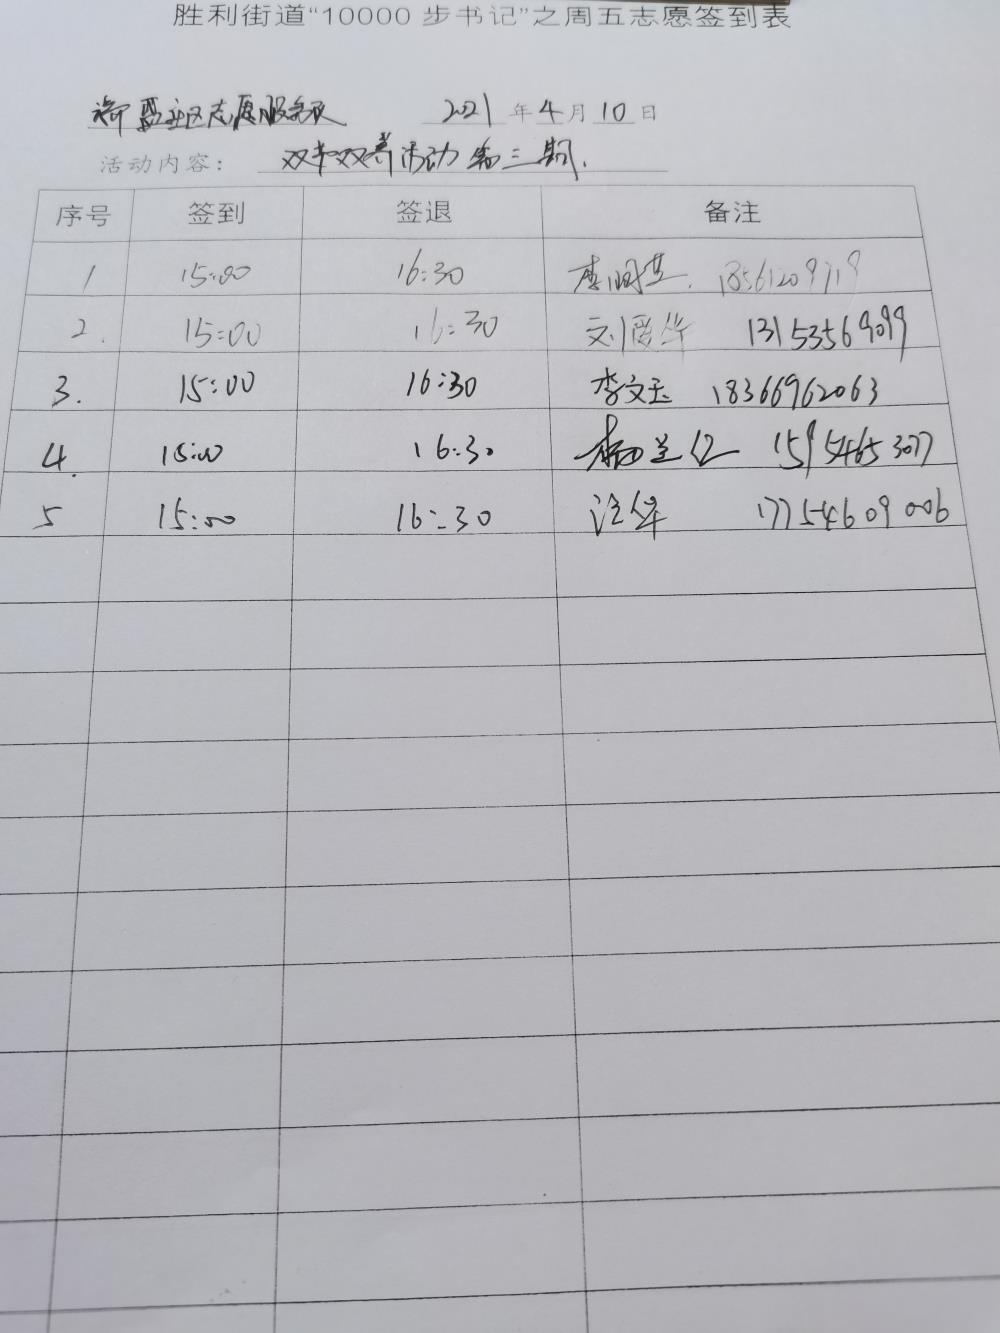 胜利街道“10000步书记”之周五志愿签到表
社区志愿服务队 2021年4月10日
活动内容： 双 双 活动 第三期.
序号 签到 签退 备注
1 15:00 16:30 李 18561209719
2. 15:00 16:30 刘爱华 13153569099
3. 15:00 16:30 李文玉 18366962063
4. 15:00 16:30 杨兰 15954653077
5 15:00 16:30 汪华 17754609006